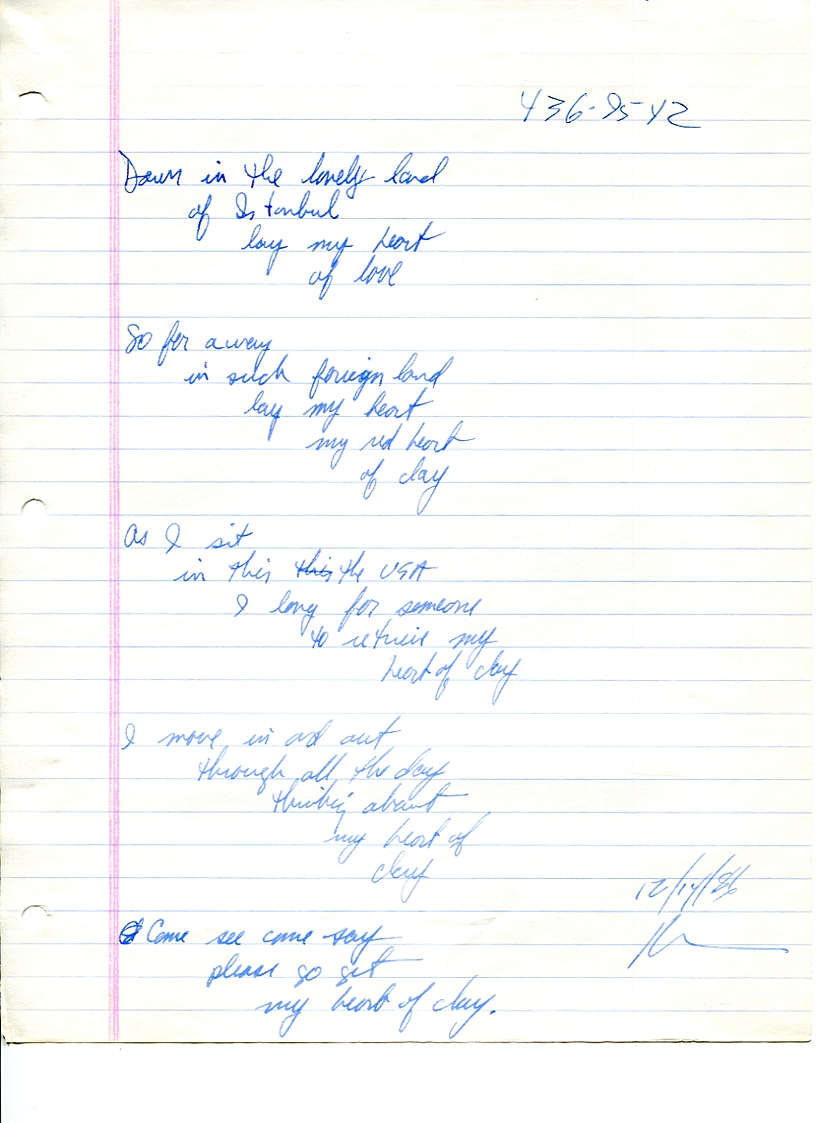 436-95-42
Down in the lovely land
of Istanbul
lay my heart
of love
So far away
in such foreign land
lay my heart
my red heart
of clay
As I sit
in this this the USA
I long for someone
to retrieve my
heart of clay
I move in and out
through all the day
thinking about
my heart of
clay
Come see come say
please go get
my heart of clay.
12/14/86